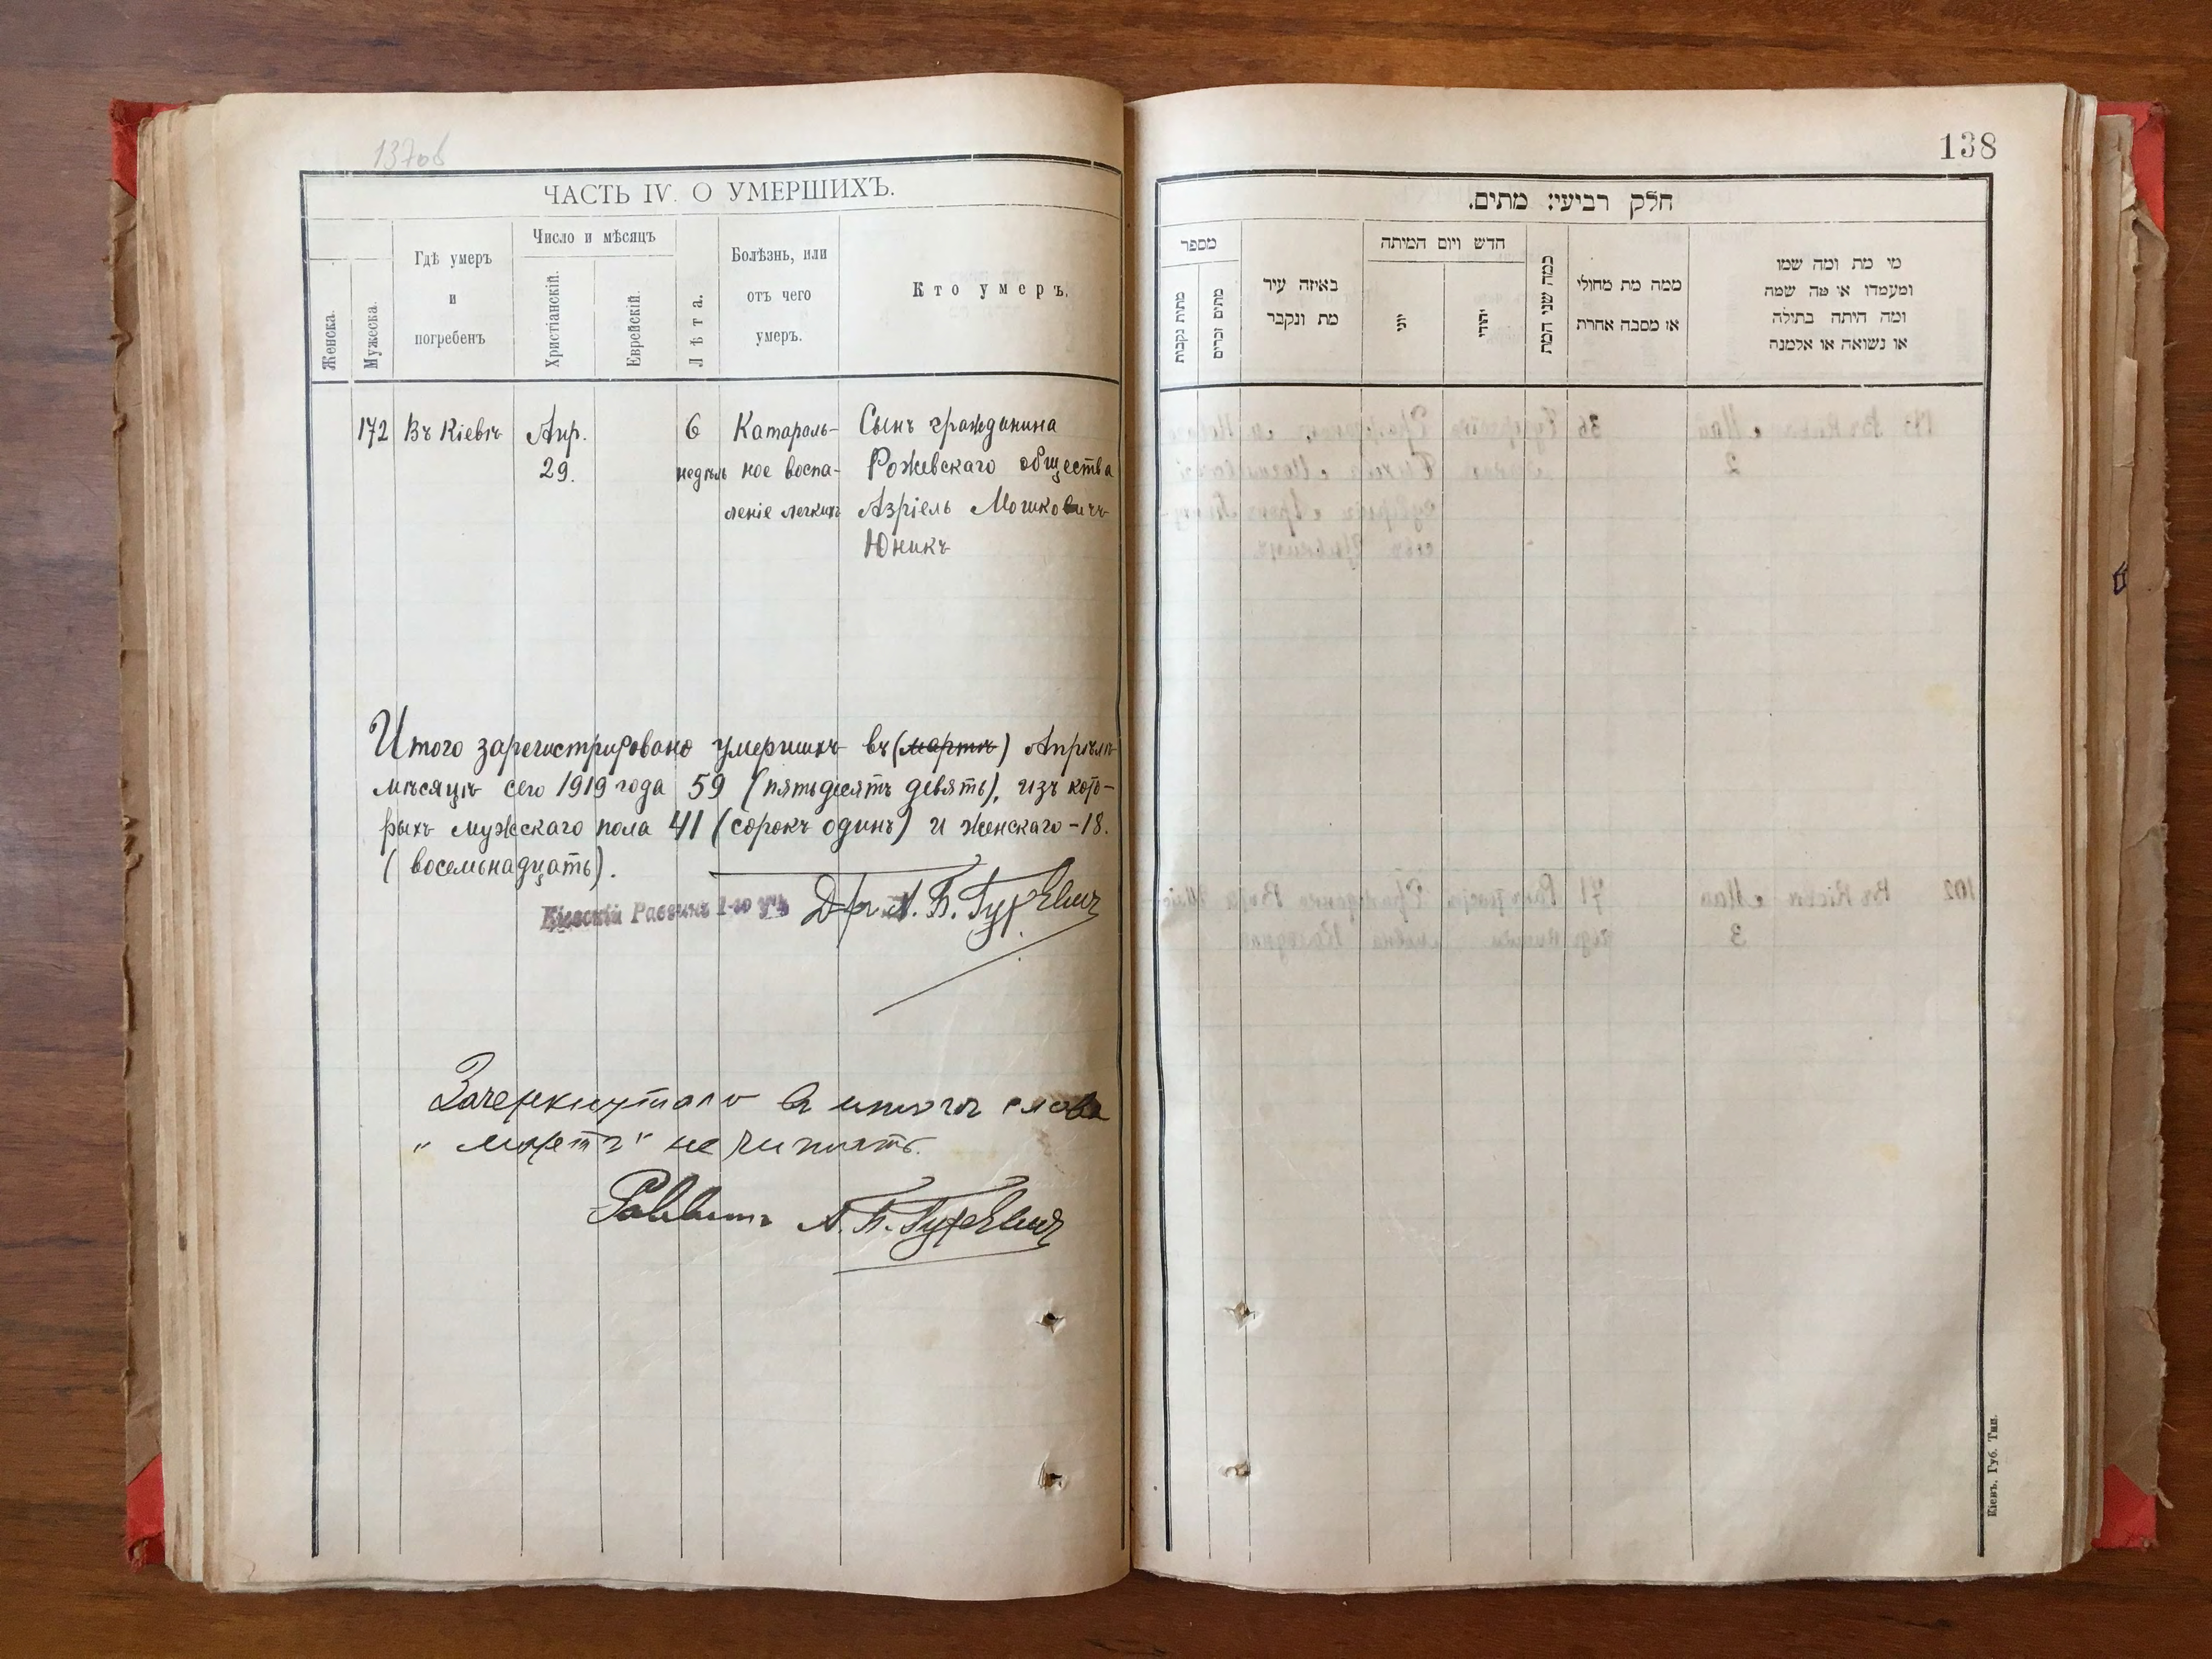 137об
ЧАСТЬ IV. О УМЕРШИХЪ.
Женска.
Мужеска.
Гдѣ умеръ
и
погребенъ
Число и мѣсяцъ
Христіанскій.
Еврейскій.
Лѣта.
Болѣзнь, или
отъ чего
умеръ.
Кто умеръ.
172 Въ Кіевѣ Апр. 29. 6 недѣль
Катараль-
ное воспа-
леніе легкихъ
Сынъ гражданина
Рожевскаго общества
Азріель Мошковичъ
Юникъ
Итого зарегистрировано умершихъ въ (мартѣ) Апрѣлѣ
мѣсяцѣ сего 1919 года 59 (пятьдесятъ девять), изъ кото-
рыхъ мужескаго пола 41 (сорокъ одинъ) и женскаго - 18.
(восемьнадцать).
Кіевскій Раввинъ 1-го уч. Д-ръ А. Б. Гуревич
Зачеркнутаго в итогѣ слова
"мартѣ" не читать.
Раввинъ А. Б. Гуревич
138
חלק רביעי: מתים.
מספר
מתות נקבות
מתים זכרים
באיזה עיר
מת ונקבר
חדש ויום המיתה
יוני
יהודי
כמה שני המת
ממה מת מחולי
או מסבה אחרת
מי מת ומה שמו
ומעמדו או מה שמה
ומה היתה בתולה
או נשואה או אלמנה
Кіевъ. Губ. Тип.